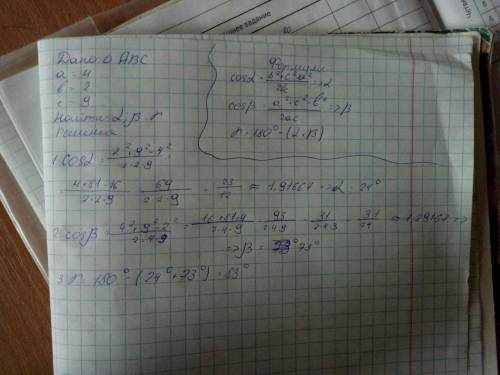 Дано: Δ ABC
a = 4
в = 2
c = 9
Найти: α, β, γ
Решение
Формули
cosα = в²+c²-a² / 2вc => α
cosβ = a²+c²-в² / 2ac => β
γ = 180° - (α+β)
1. cosα = 2²+9²-4² / 2·2·9 =
= 4+81-16 / 2·2·9 = 69 / 2·2·9 = 23 / 12 ≈ 1.91667 => α = 24°
2. cosβ = 4²+9²-2² / 2·4·9 = 16+81-4 / 2·4·9 = 93 / 2·4·9 = 31 / 2·4·3 = 31 / 24 ≈ 1.29167 =>
=> β = 73°
3. γ = 180° - (24° + 73°) = 83°